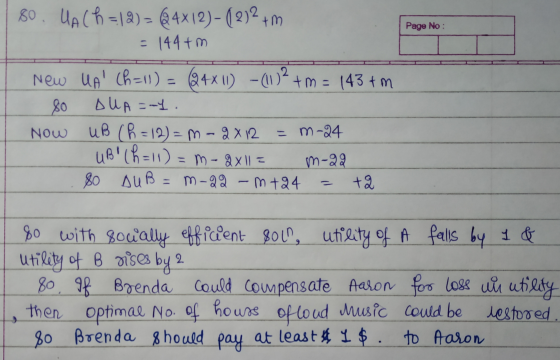 So. UA(h=12) = (24×12) - (12)² + m
Page No :
= 144 + m
New UA' (h=11) = (24×11) - (11)² + m = 143 + m
So ΔUA = -1.
Now UB (h=12) = m - 2×12 = m-24
UB' (h=11) = m - 2×11 = m-22
So ΔUB = m-22 - m+24 = +2
So with socially efficient solⁿ, utility of A falls by 1 &
utility of B rises by 2
So. If Brenda could compensate Aaron for loss in utility
, then optimal No. of hours of loud Music could be restored.
So Brenda should pay at least $ 1 $. to Aaron